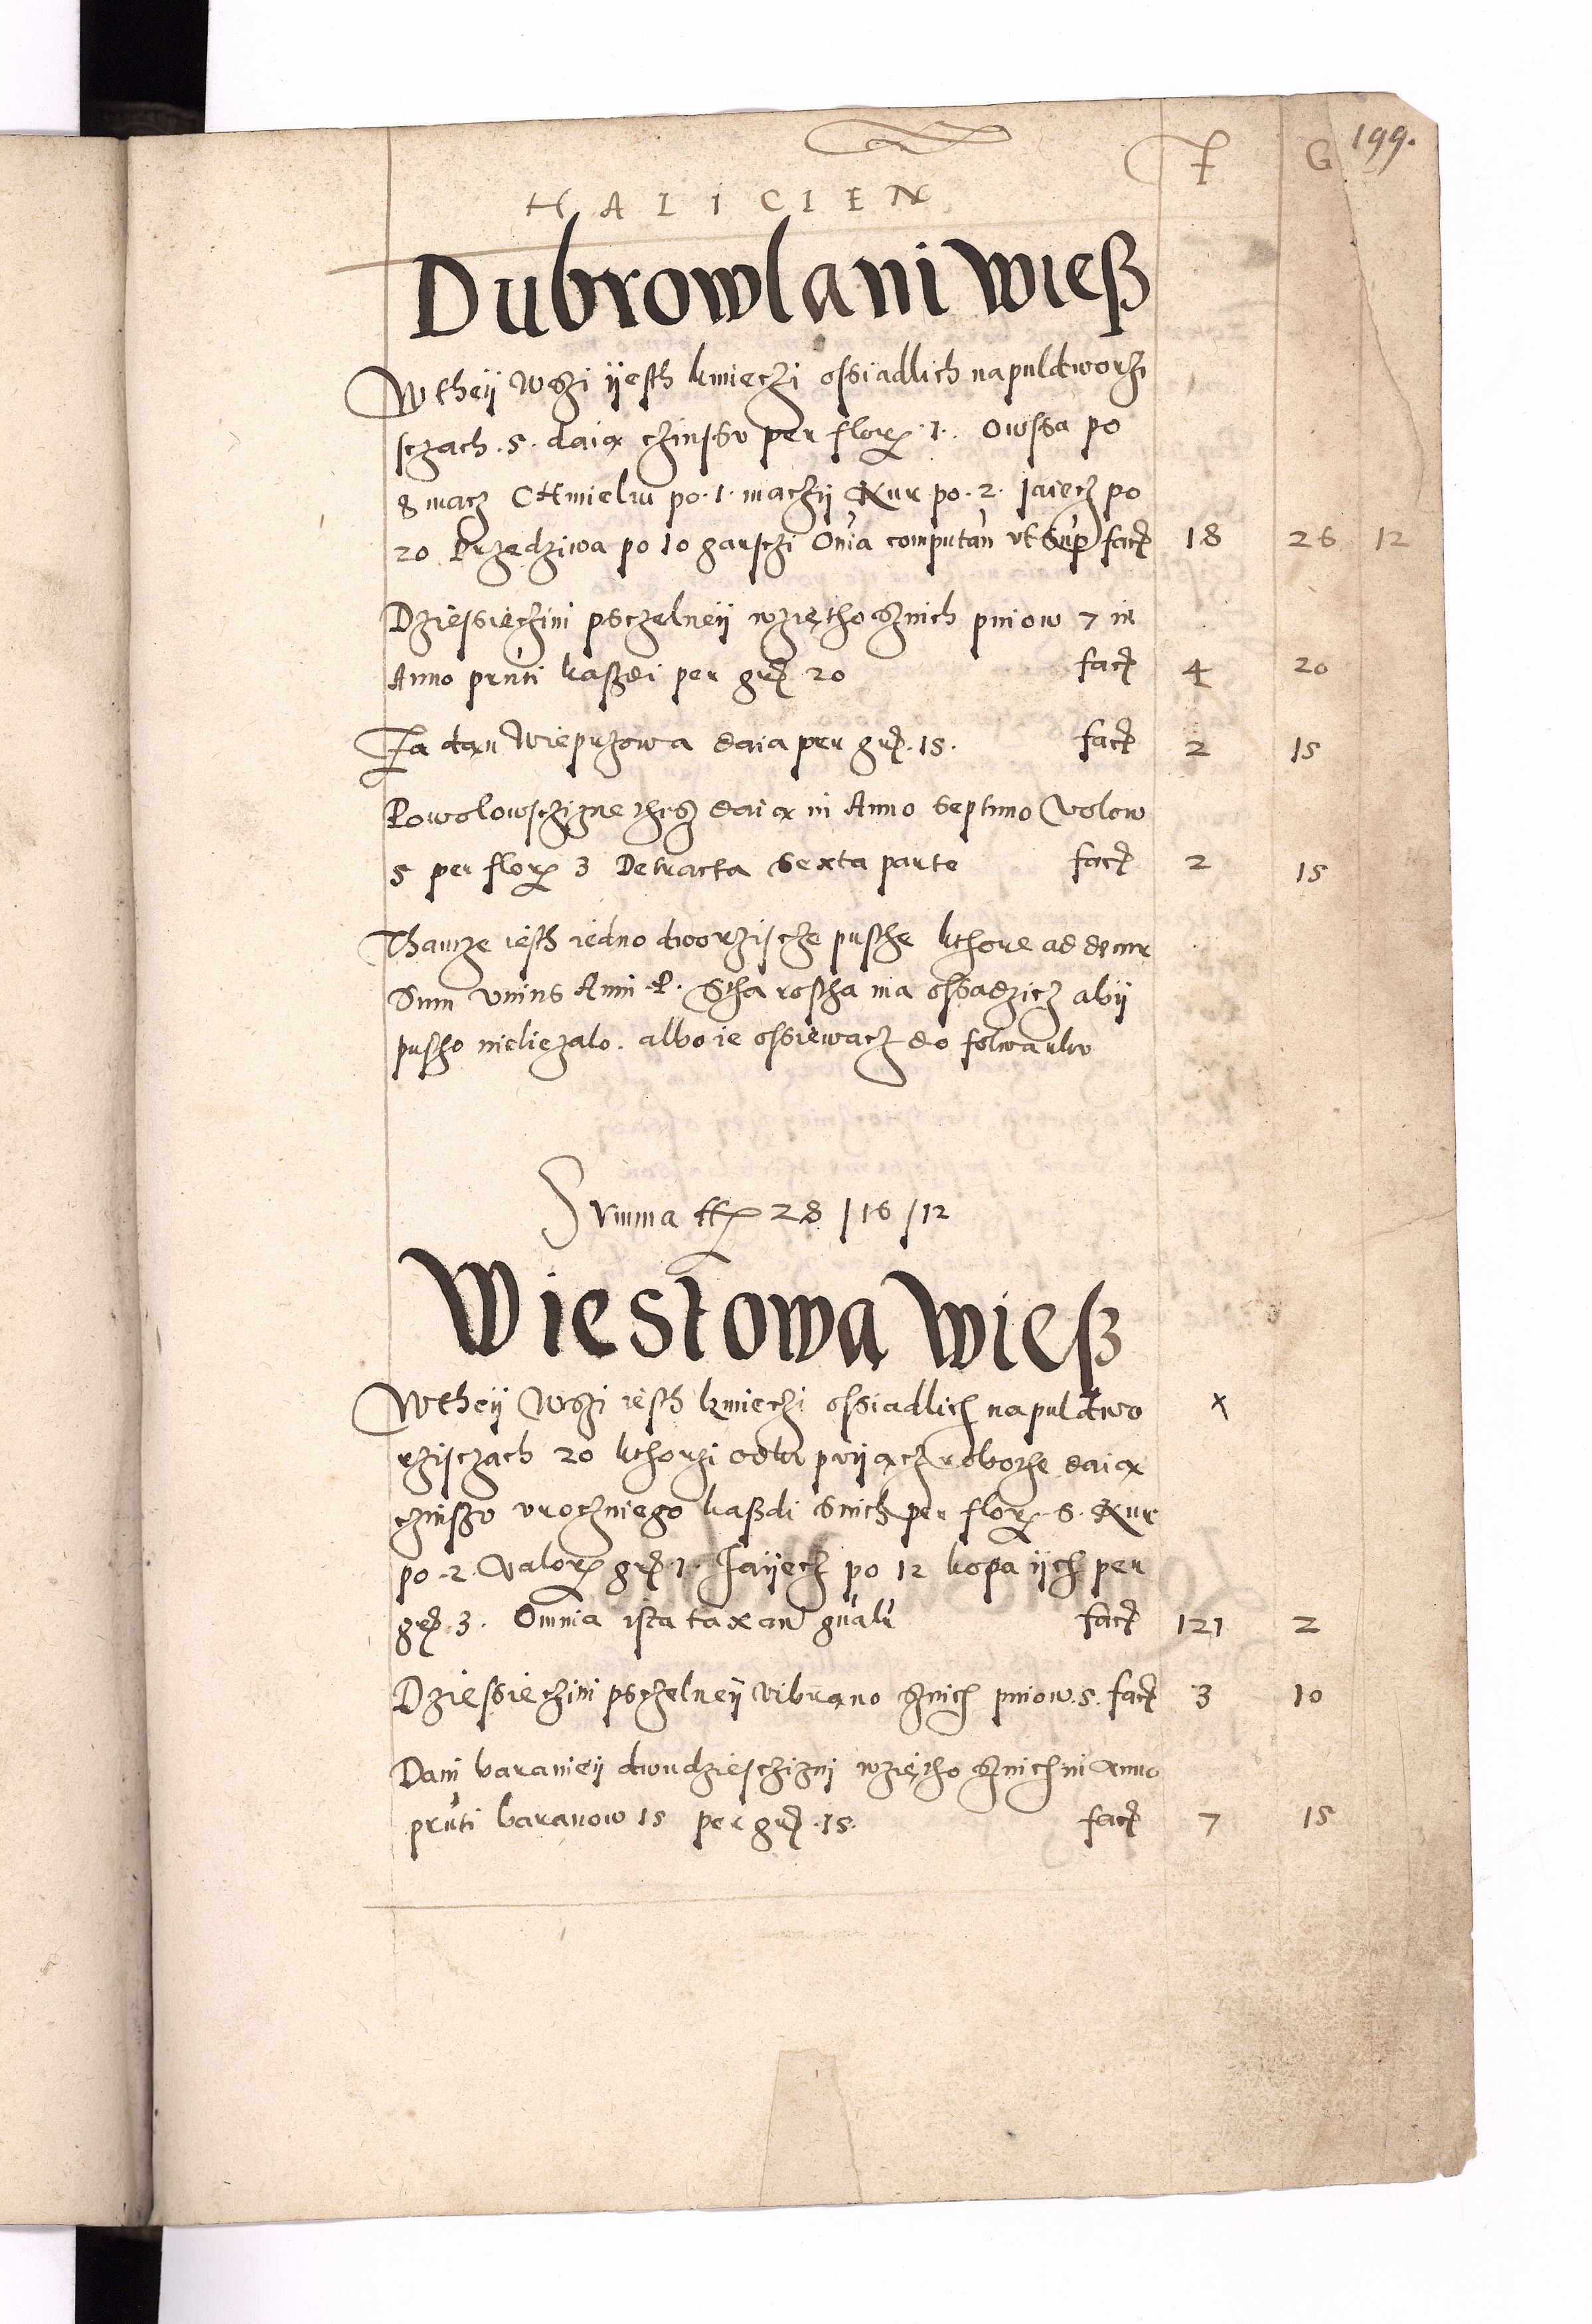 F G 199.
HALICIEN
Dubrowlani wieß
W theÿ wszi ÿesth kmieczi ossiadlich na puldworzi
sczach .5. daią czinsw per flor. 1. Owssa po
8 macz CHmielw po .1. maczÿ Kur po .2. Jaiecz po
20 Przędziwa po 10 garsczi Omnia computan vt Sup fact 18 26 12
Dziessieczini psczelneÿ wzięcho Znich pniow 7 in
Anno pnti kaszdi per grz 20 fact 4 20
Za dan wieprzowa daia per grz .15. fact 2 15
Powolowsczizne thesz daią in Anno Septimo Wolow
5 per flor 3 Detracta Sexta parte fact 2 15
Thamze iesth iedno dworziscze pusthe kthore ad decur
Sum vnius Anni P. Stharostha ma ossadzicz abÿ
pustho nieliezalo. albo ie ossiewacz do folwarkw
Summa ff 28 / 16 / 12
Wiestowa wieß
W theÿ Wszi iesth kmieczi ossiadlich na puldwo x
rzisczach 20 kthorzi odkupÿącz robothe daią
czinszv vroczniego kaszdi Snich per flor. 6. Kur
po .2. Valor. grz .1. Jaÿecz po 12 kopa ÿch per
grz .3. Omnia ista taxan gnali fact 121 2
Dziessieczini psczelneÿ Vibrano Znich pniow .5. fact 3 10
Dani baranieÿ dwudziesczizni wzięcho Znich in Anno
pnti baranow 15 per grz .15. fact 7 15